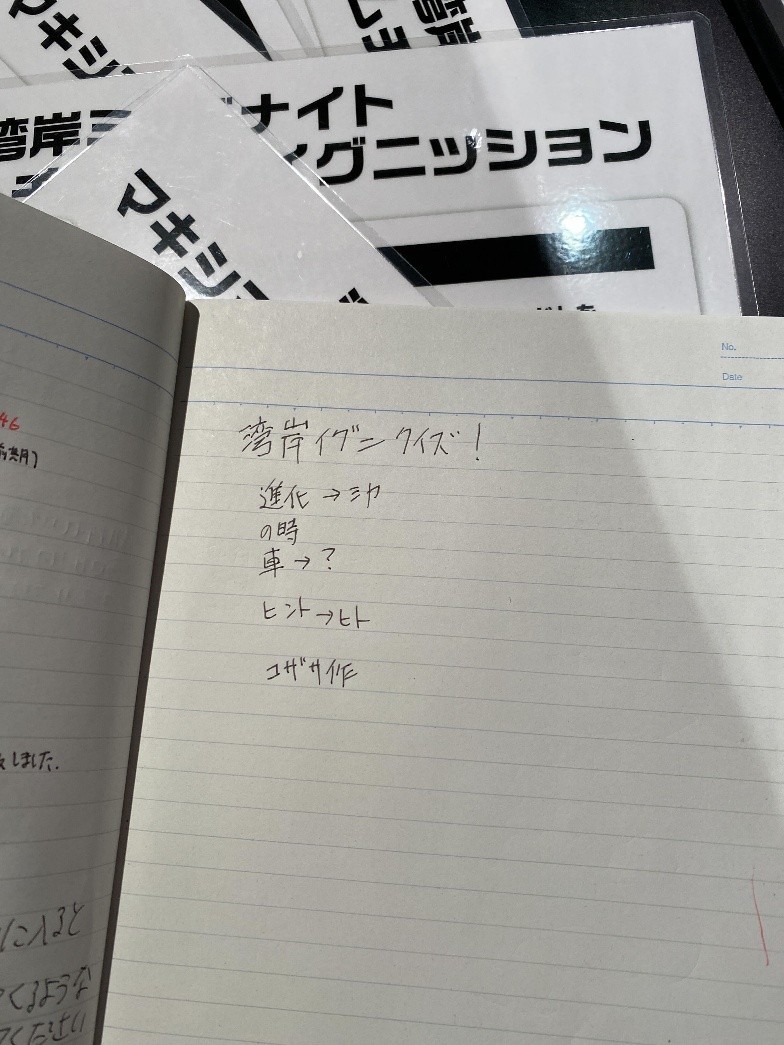 マキシ
湾岸
しョ
湾岸ミ
ナイト
イグニッション
マキシ
No.
Date
46
湾岸イグニクイズ!
進化→ミカ
の時
車→?
ヒント→ヒト
コザサ作
しました.
に入ると
くるような
ください